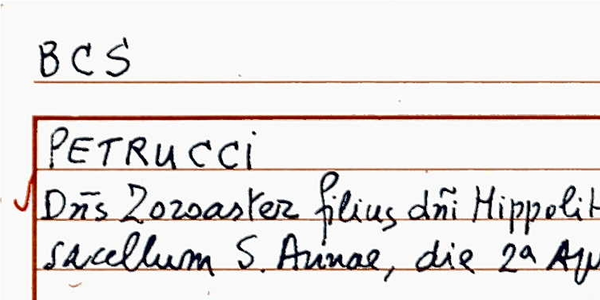 BCS
PETRUCCI
Dn̄s Zoroaster filius dn̄i Hippolit
sacellum S. Annae, die 2a